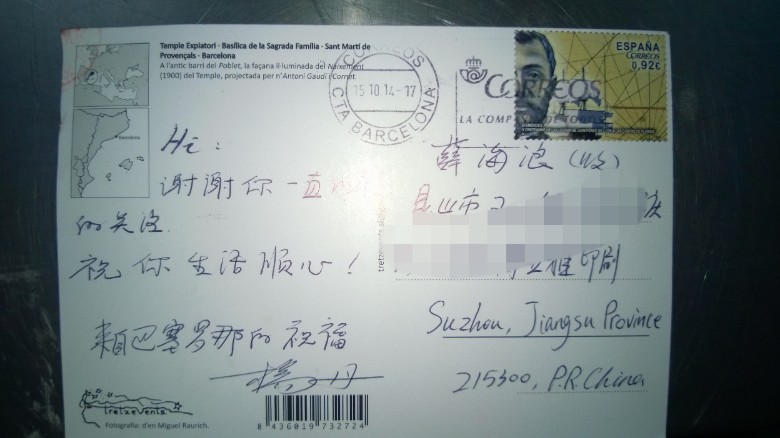 Temple Expiatori - Basílica de la Sagrada Família - Sant Martí de
Provençals - Barcelona
A l'antic barri del Poblet, la façana il·luminada del Naixement
(1900) del Temple, projectada per n'Antoni Gaudí i Cornet.
Barcelona
CORREOS
15 10 14-17
CTA BARCELONA
CORREOS
LA COMPAÑÍA DE TODOS
ESPAÑA
CORREOS
0,92€
Hi:
谢谢你一直
的关注
祝你生活顺心!
来自巴塞罗那的祝福
薛海浪(收)
昆山市
印刷
Suzhou, Jiangsu Province
215300, P.R.China
tretzevents
Fotografia: d'en Miguel Raurich.
8 436019 732724